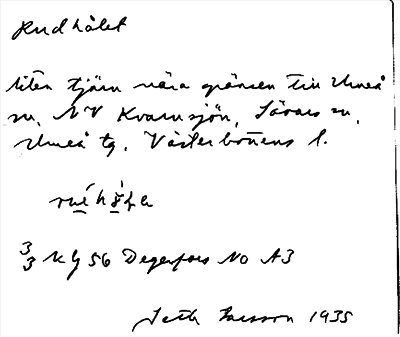 Rudhålet
liten tjärn nära gränsen till Umeå
sn, NV Kvarnsjön, Sävars sn,
Umeå tg, Västerbottens l.
3/3 Kg 56 Degerfors NO A3
Seth Larsson 1935